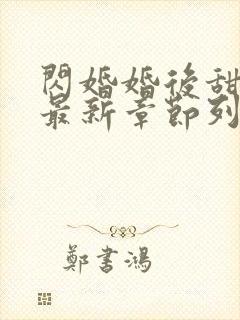 閃婚婚後甜
最新章節列
鄭書鴻